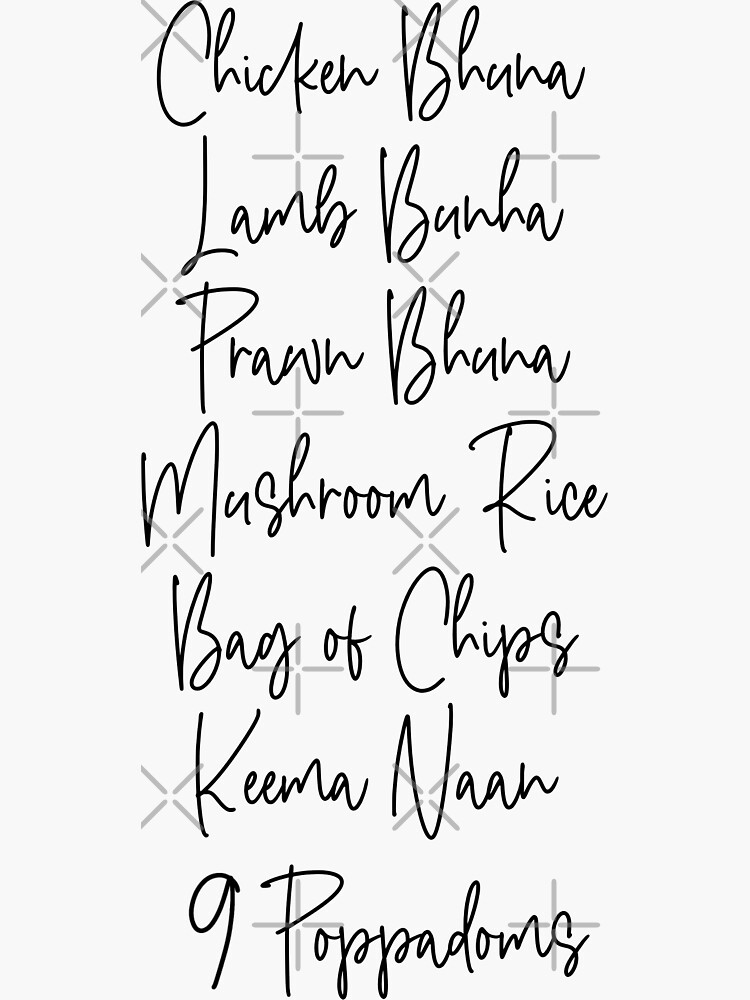 Chicken Bhuna
Lamb Bunha
Prawn Bhuna
Mushroom Rice
Bag of Chips
Keema Naan
9 Poppadoms